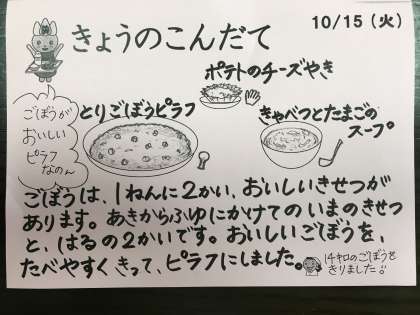 10/15（火）
きょうのこんだて
ポテトのチーズやき
とりごぼうピラフ
きゃべつとたまごの
スープ
ごぼうが
おいしい
ピラフ
なのん
ごぼうは、1ねんに2かい、おいしいきせつが
あります。あきからふゆにかけてのいまのきせつ
と、はるの2かいです。おいしいごぼうを、
たべやすくきって、ピラフにしました。
14キロのごぼうを
きりました